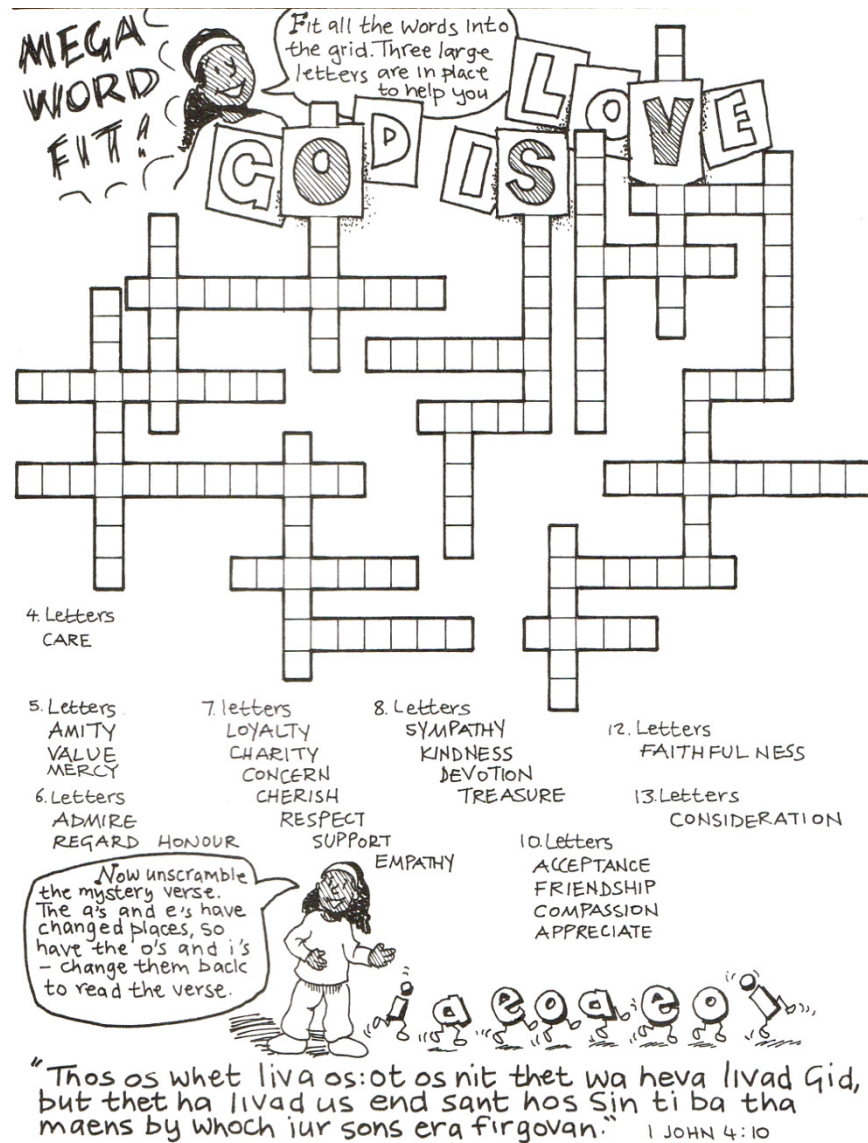 MEGA
WORD
FIT!
Fit all the words into
the grid. Three large
letters are in place
to help you
GOD IS LOVE
4. Letters
CARE
5. Letters
AMITY
VALUE
MERCY
6. Letters
ADMIRE
REGARD HONOUR
7. letters
LOYALTY
CHARITY
CONCERN
CHERISH
RESPECT
SUPPORT
EMPATHY
8. Letters
SYMPATHY
KINDNESS
DEVOTION
TREASURE
10. Letters
ACCEPTANCE
FRIENDSHIP
COMPASSION
APPRECIATE
12. Letters
FAITHFULNESS
13. Letters
CONSIDERATION
Now unscramble
the mystery verse.
The a's and e's have
changed places, so
have the o's and i's
– change them back
to read the verse.
i a e o a e o i
"Thos os whet liva os: ot os nit thet wa heva livad Gid,
but thet ha livad us end sant hos Sin ti ba tha
maens by whoch iur sons era firgovan." 1 JOHN 4:10